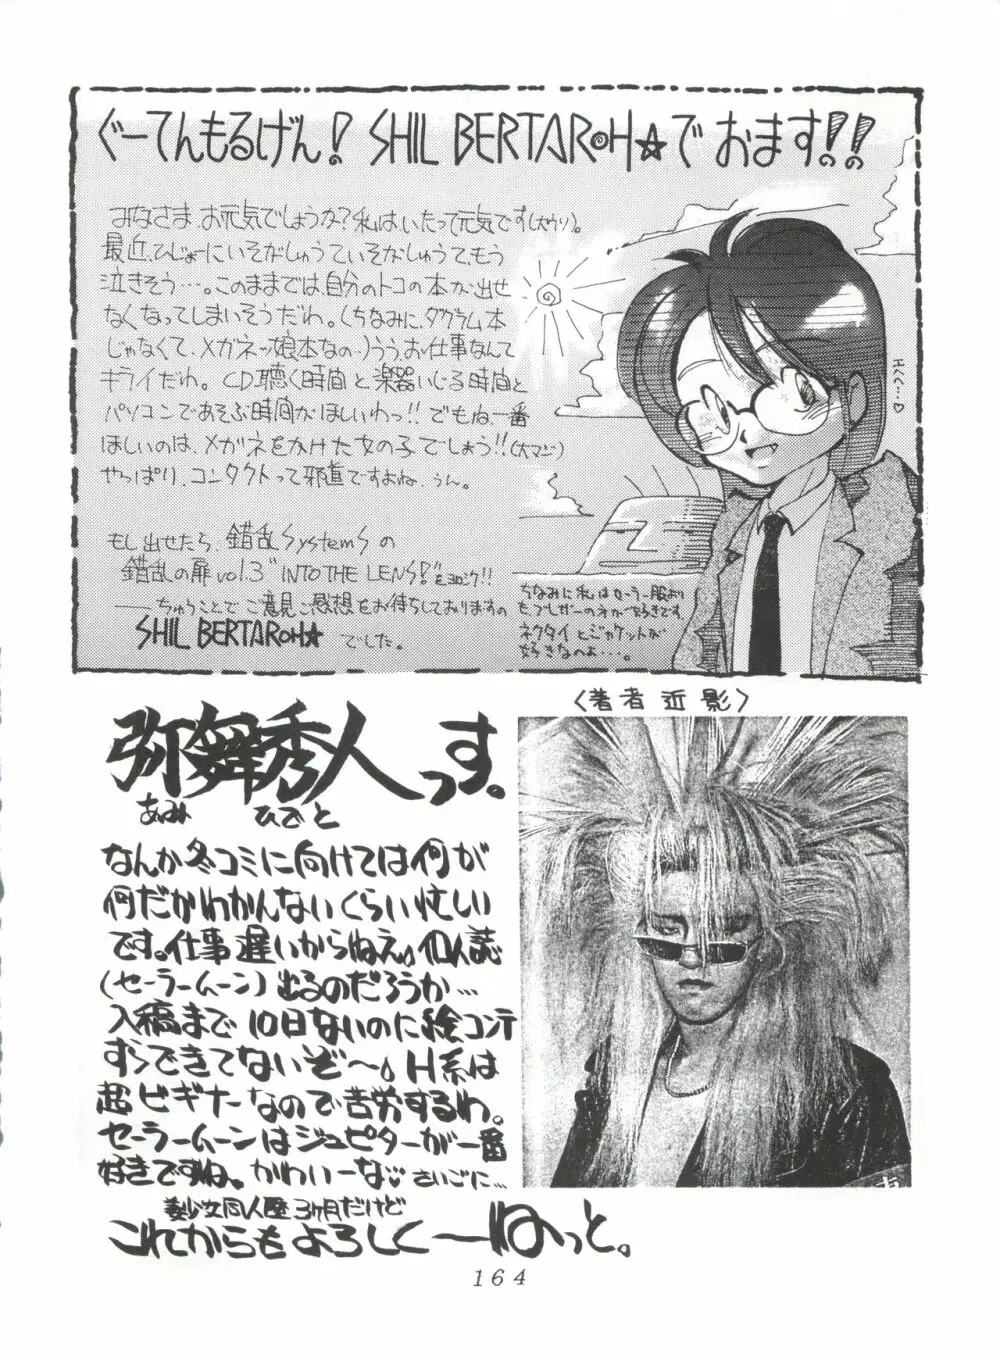 ぐーてんもるげん! SHIL BERTAROH☆でおます!!
みなさま、お元気でしょうか?私はいたって元気です(大ウソ)。
最近、ひじょーにいそがしゅうていそがしゅうて、もう
泣きそう…。このままでは自分のトコの本が出せ
なくなってしまいそうだわ。(ちなみに、ダグラム本
じゃなくて、メガネッ娘本なの…)うう、お仕事なんて
キライだわ。CD聴く時間と楽器いじる時間と
パソコンであそぶ時間がほしいわっ!!でもね、一番
ほしいのは、メガネをかけた女の子でしょう!!(大マジ)
やっぱり、コンタクトって邪道ですよね、うん。
もし出せたら、錯乱SystemSの
錯乱の扉vol.3 "INTO THE LENS!"をヨロシク!!
——ちゅうことでご意見ご感想をお待ちしておりますの
SHIL BERTAROH☆でした。
エヘヘ…♡
ちなみに私はセーラー服より
もブレザーのオが好きです。
ネクタイとジャケットが
好きなのよ…。
〈著者近影〉
弥舞秀人っす。
あみ ひでと
なんか冬コミに向けては何が
何だかわかんないくらい忙しい
です。仕事遅いからねえ。個人誌
(セーラームーン)出るのだろうか…
入稿まで10日ないのに絵コンテ
すらできてないぞ〜。H系は
超ビギナーなので苦労するわ。
セーラームーンはジュピターが一番
好きですね。かわいーな♡さいごに…
美少女同人歴3ヶ月だけど
これからもよろしくーねっと。
164